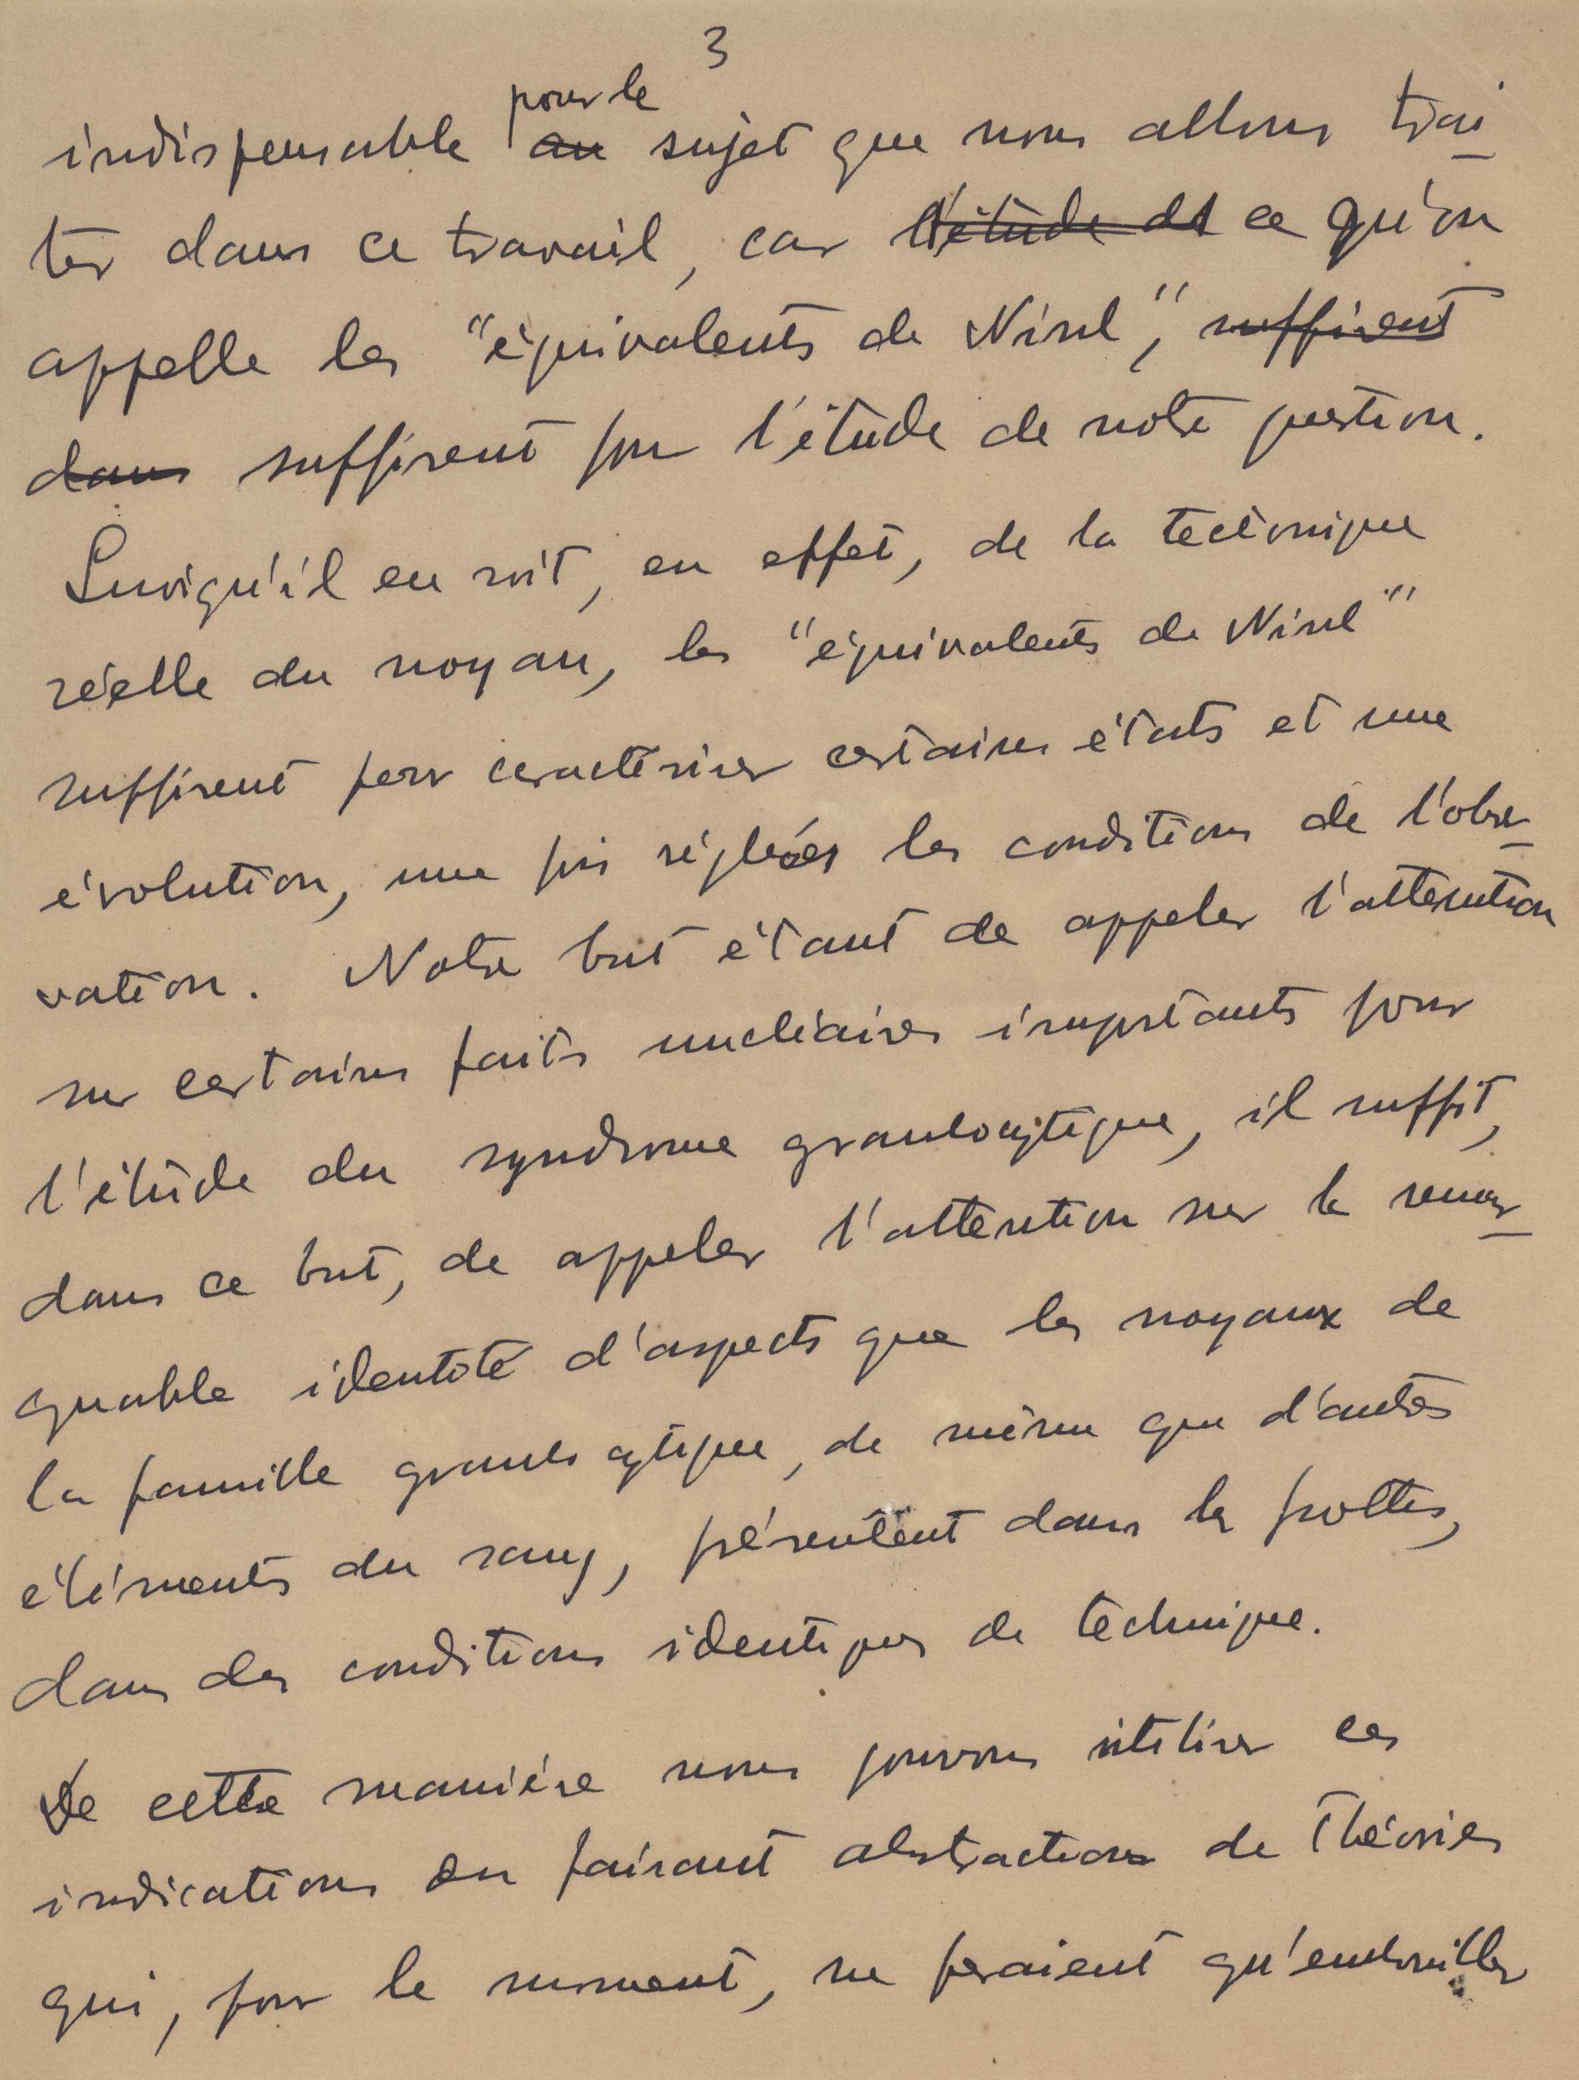 3
pour le
indispensable au sujet que nous allons trai
ter dans ce travail, car l'étude de ce qu'on
appelle les "équivalents de Nissl", suffisent
dans suffisent pour l'étude de notre question.
Quoiqu'il en soit, en effet, de la tectonique
réelle du noyau, les "équivalents de Nissl"
suffisent pour caractériser certains états et une
évolution, une fois réglées les conditions de l'obser
vation. Notre but étant de appeler l'attention
sur certains faits nucléaires importants pour
l'étude du syndrome granulocytique, il suffit,
dans ce but, de appeler l'attention sur la remar
quable identité d'aspects que les noyaux de
la famille granulocytique, de même que d'autres
éléments du sang, présentent dans les frottis,
dans des conditions identiques de technique.
De cette manière nous pouvons utiliser ces
indications en faisant abstraction de théories
qui, pour le moment, ne feraient qu'embrouiller